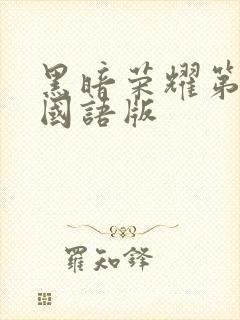 黑暗荣耀第
國語版
羅知鋒